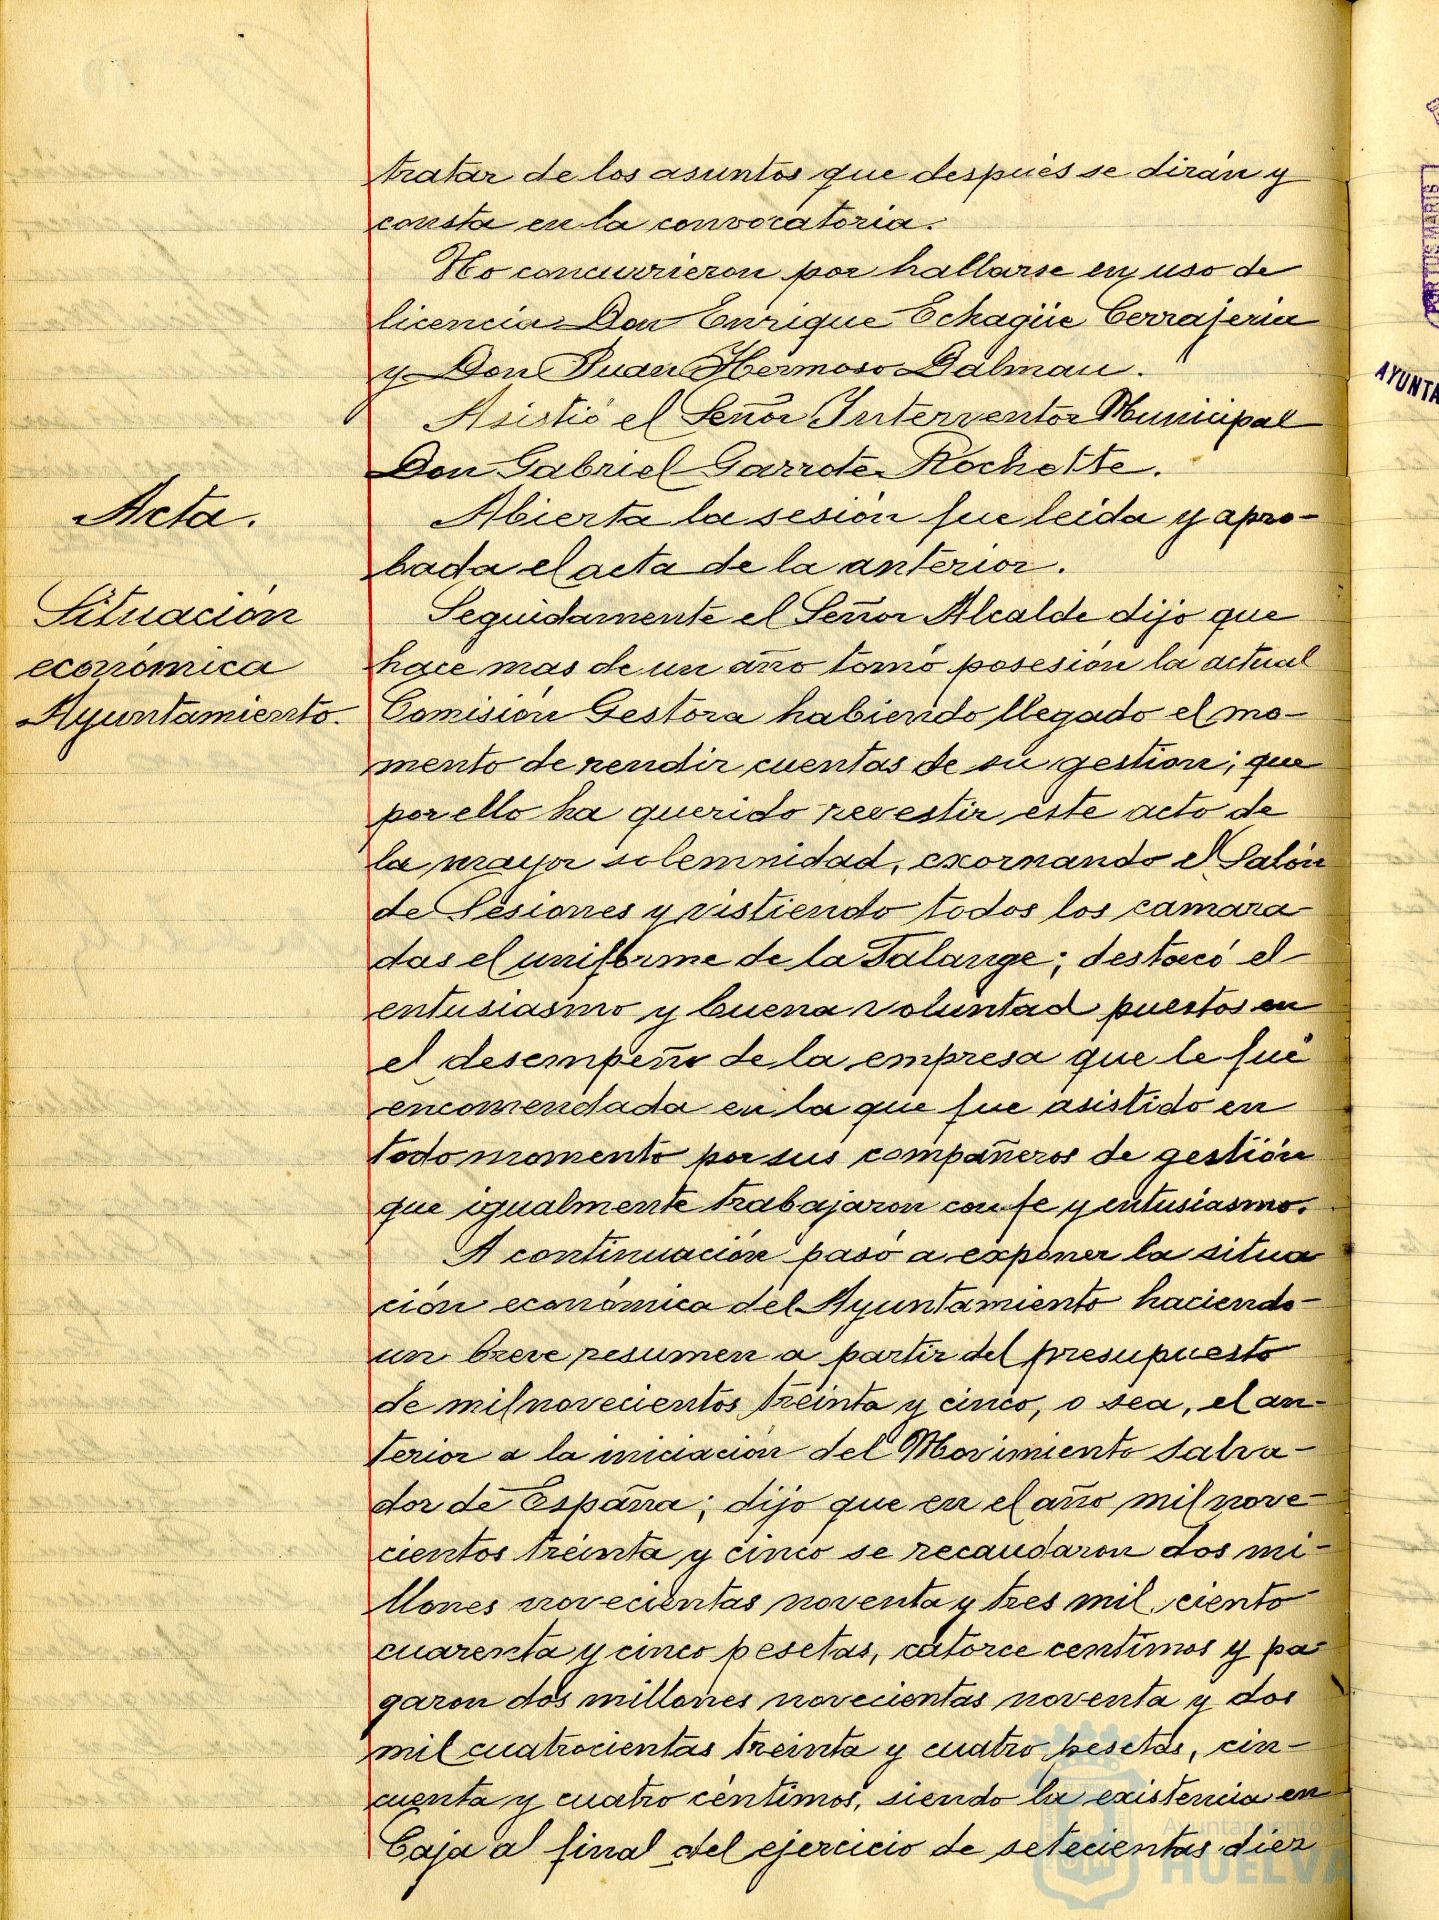 tratar de los asuntos que después se dirán y
consta en la convocatoria.
No concurrieron por hallarse en uso de
licencia Don Enrique Echagüe Cerrajeria
y Don Juan Hermoso Dalmau.
Asistió el Señor Interventor Municipal
Don Gabriel Garrote Rochette.
Acta.
Abierta la sesión fue leida y apro-
bada el acta de la anterior.
Situación
económica
Ayuntamiento.
Seguidamente el Señor Alcalde dijo que
hace mas de un año tomó posesión la actual
Comisión Gestora habiendo llegado el mo-
mento de rendir cuentas de su gestion; que
por ello ha querido revestir este acto de
la mayor solemnidad, exornando el Salón
de Sesiones y vistiendo todos los camara
das el uniforme de la Falange; destacó el
entusiasmo y buena voluntad puestos en
el desempeño de la empresa que le fué
encomendada en la que fue asistido en
todo momento por sus compañeros de gestión
que igualmente trabajaron con fe y entusiasmo.
A continuación pasó a exponer la situa
ción económica del Ayuntamiento haciendo
un breve resumen a partir del presupuesto
de mil novecientos treinta y cinco, o sea, el an-
terior a la iniciación del Movimiento Salva-
dor de España; dijo que en el año mil nove-
cientos treinta y cinco se recaudaron dos mi-
llones novecientas noventa y tres mil ciento
cuarenta y cinco pesetas, catorce centimos y pa-
garon dos millones novecientas noventa y dos
mil cuatrocientas treinta y cuatro pesetas, cin-
cuenta y cuatro céntimos, siendo la existencia en
Caja al final del ejercicio de setecientas diez
PORTUS MARIS
AYUNTA
Ayuntamiento de
HUELVA